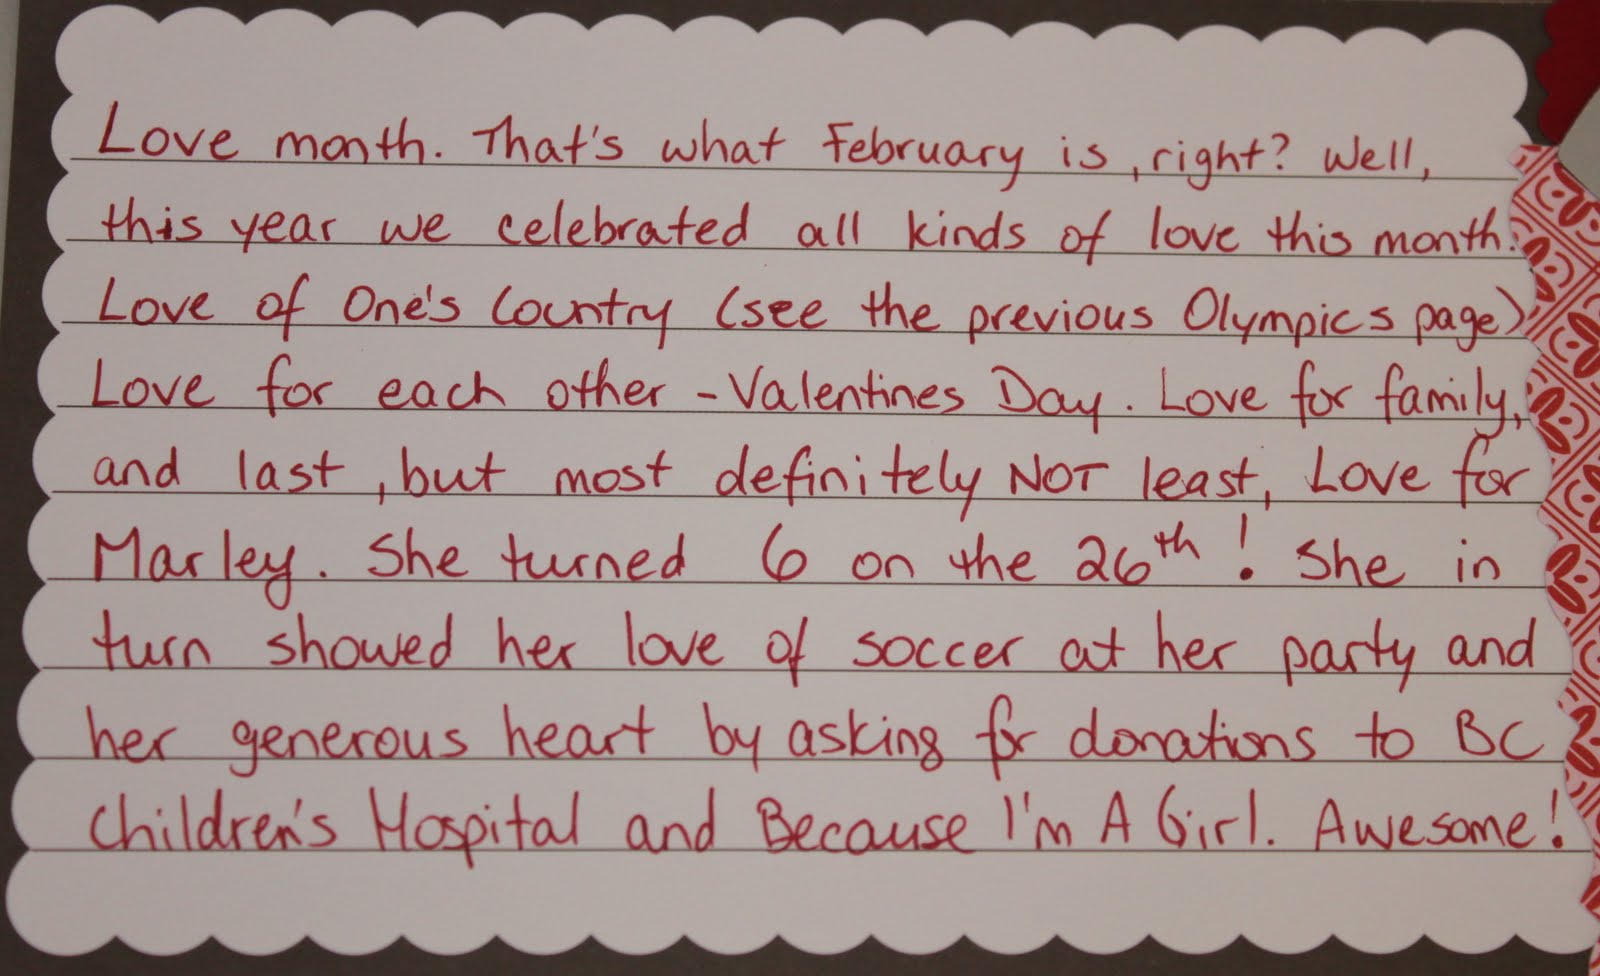 Love month. That's what February is, right? Well,
this year we celebrated all kinds of love this month.
Love of One's Country (see the previous Olympics page)
Love for each other - Valentines Day. Love for family,
and last, but most definitely NOT least, Love for
Marley. She turned 6 on the 26th! She in
turn showed her love of soccer at her party and
her generous heart by asking for donations to BC
Children's Hospital and Because I'm A Girl. Awesome!